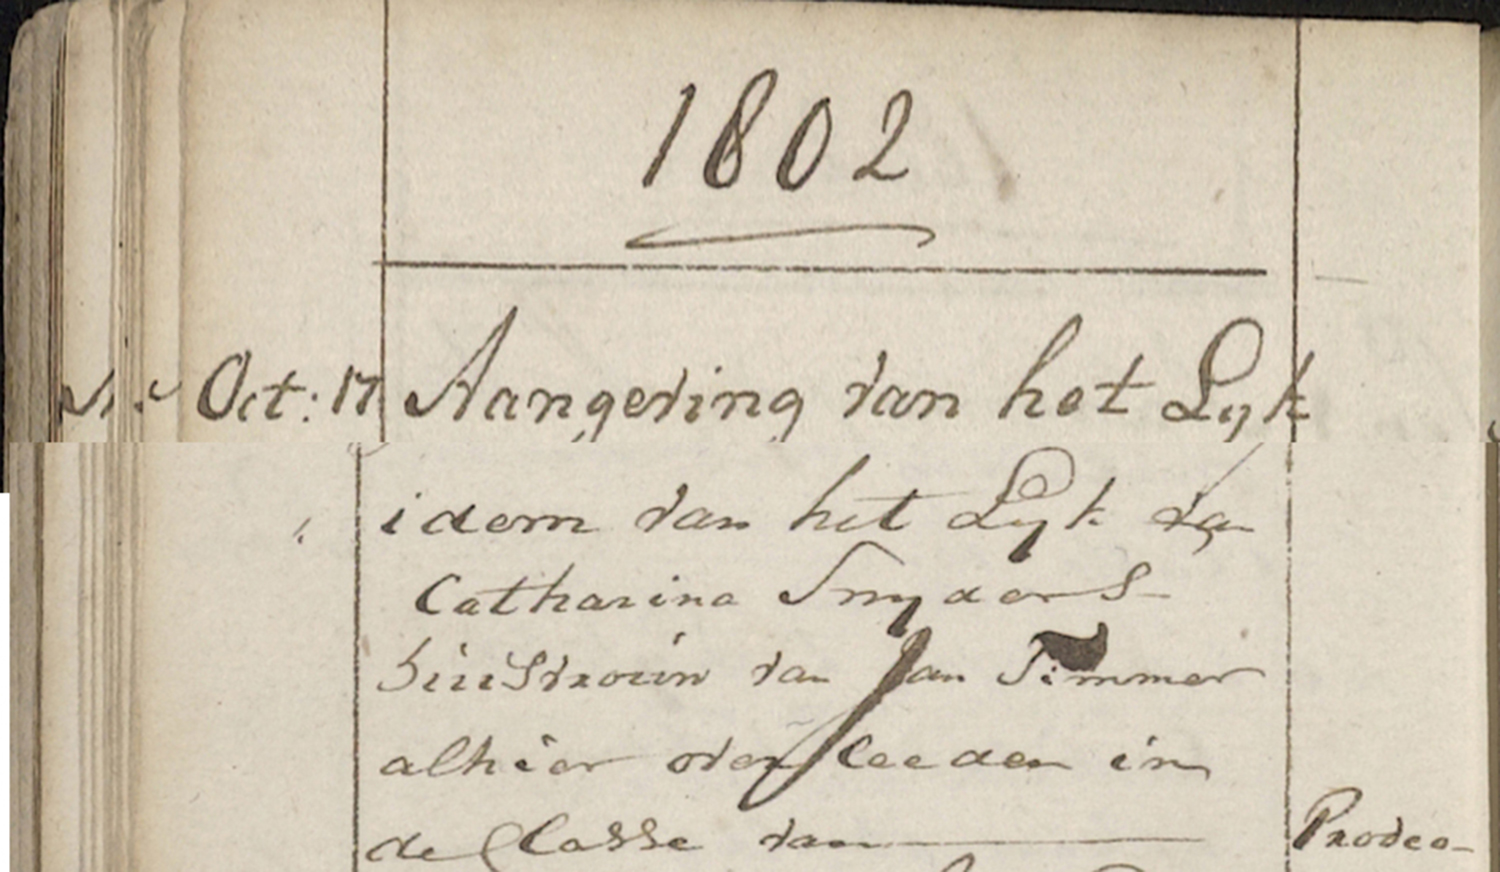 1802
Oct: 17 Aangeving van het Lyk
idem van het Lyk van
Catharina Snyders
huisvrouw van Jan Timmer
alhier overleeden in
de Classe van Prodeo